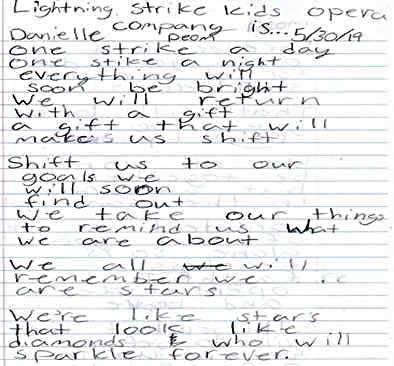 Lightning strike kids opera
company is... 5/30/19
Danielle Deom
one strike a day
One stike a night
everything will
soon be bright
We will return
With a gift
a gift that will
makes us shift
Shift us to our
goals we
will soon
find out
We take our things
to remind us what
we are about
We all we will
remember we
are stars
We're like stars
that looks like
diamonds & who will
sparkle forever.